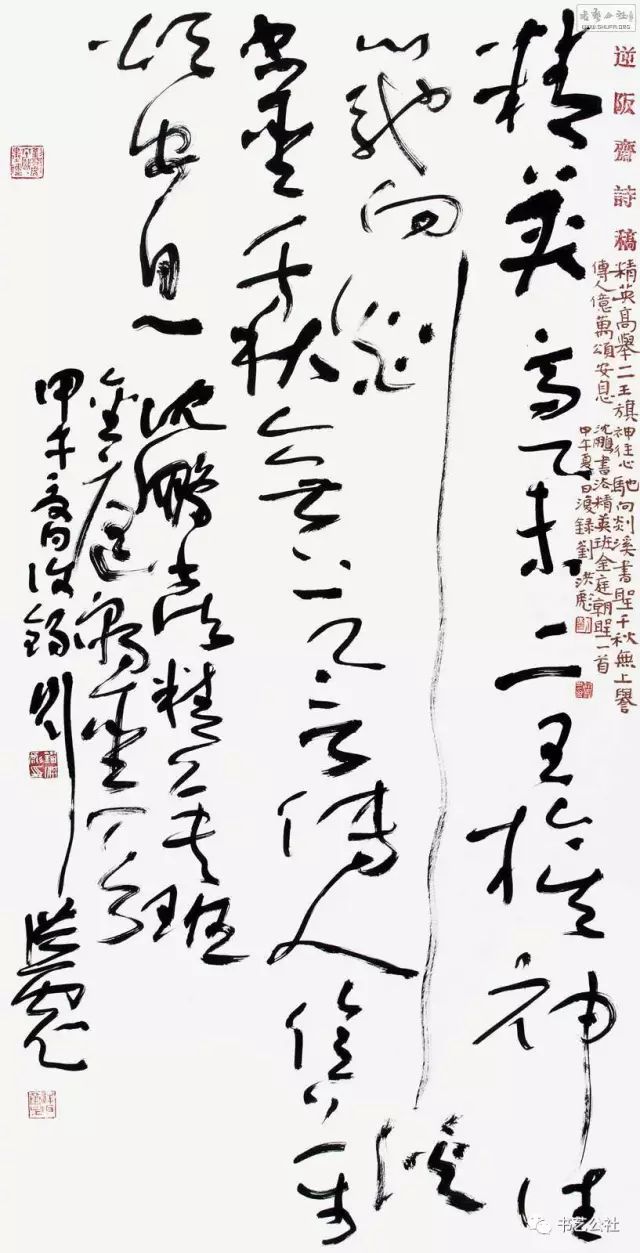 书艺公社
WWW.SHUFA.ORG
逆阪齋詩稿
精英高舉二王旗神往心馳向剡溪書聖千秋無上譽
傳人億萬頌安息 沈鵬書法精英班金庭朝聖一首
甲午夏日錄劉洪彪
精英高舉二王旗神往
心馳向剡溪
書聖千秋無上譽傳人億萬
頌安息
沈鵬書法精英班
金庭朝聖一首
甲午夏日錄劉洪彪
书艺公社